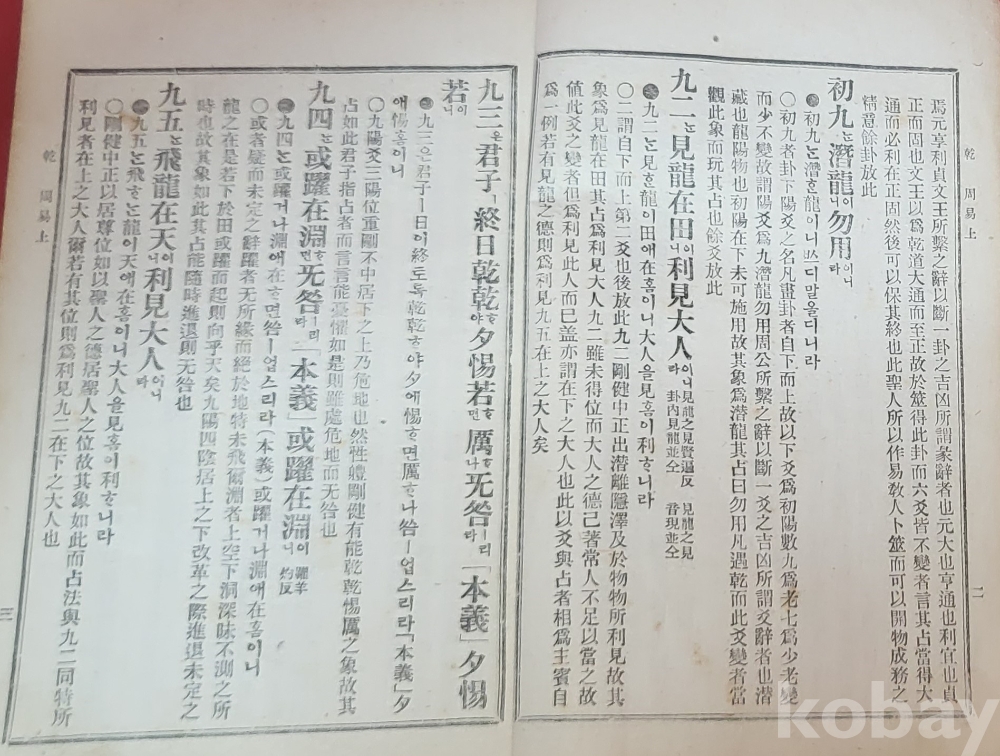 乾　周易上
二
焉元亨利貞文王所繫之辭以斷一卦之吉凶所謂彖辭者也元大也亨通也利宜也貞
正而固也文王以爲乾道大通而至正故於筮得此卦而六爻皆不變者言其占當得大
通而必利在正固然後可以保其終也此聖人所以作易敎人卜筮而可以開物成務之
精意餘卦放此
初九는潛龍이니勿用이니라
初九는潛ᄒᆞᆫ龍이니ᄡᅳ디말올디니라
○初九者卦下陽爻之名凡畫卦者自下而上故以下爻爲初陽數九爲老七爲少老變
而少不變故謂陽爻爲九潛龍勿用周公所繫之辭以斷一爻之吉凶所謂爻辭者也潛
藏也龍陽物也初陽在下未可施用故其象爲潛龍其占曰勿用凡遇乾而此爻變者當
觀此象而玩其占也餘爻放此
九二는見龍在田이니利見大人이니라 見龍之見賢遍反 卦內見龍並仝 見龍之見 音現並仝
九二는見ᄒᆞᆫ龍이田애在홈이니大人을見홈이利ᄒᆞ니라
○二謂自下而上第二爻也後放此九二剛健中正出潛離隱澤及於物物所利見故其
象爲見龍在田其占爲利見大人九二雖未得位而大人之德已著常人不足以當之故
値此爻之變者但爲利見此人而已盖亦謂在下之大人也此以爻與占者相爲主賓自
爲一例若有見龍之德則爲利見九五在上之大人矣
九三은君子ㅣ終日乾乾ᄒᆞ야夕惕若ᄒᆞ면厲ᄒᆞ나无咎ㅣ리라「本義」夕惕
若이니
九三은君子ㅣ日이終토록乾乾ᄒᆞ야夕에惕ᄒᆞ면厲ᄒᆞ나咎ㅣ업스리라「本義」夕
애惕홈이니
○九陽爻三陽位重剛不中居下之上乃危地也然性體剛健有能乾乾惕厲之象故其
占如此君子指占者而言言能憂懼如是則雖處危地而无咎也
九四는或躍在淵ᄒᆞ면无咎ㅣ리라「本義」或躍在淵이니 躍羊 灼反
九四는或躍거나淵애在ᄒᆞ면咎ㅣ업스리라（本義）或躍거나淵애在홈이니
○或者疑而未定之辭躍者无所緣而絕於地特未飛爾淵者上空下洞深昧不測之所
龍之在是若下於田或躍而起則向乎天矣九陽四陰居上之下改革之際進退未定之
時也故其象如此其占能隨時進退則无咎也
九五는飛龍在天이니利見大人이니라
九五는飛ᄒᆞᆫ龍이天애在홈이니大人을見홈이利ᄒᆞ니라
○剛健中正以居尊位如以聖人之德居聖人之位故其象如此而占法與九二同特所
利見者在上之大人爾若有其位則爲利見九二在下之大人也
乾　周易上
三
kobay